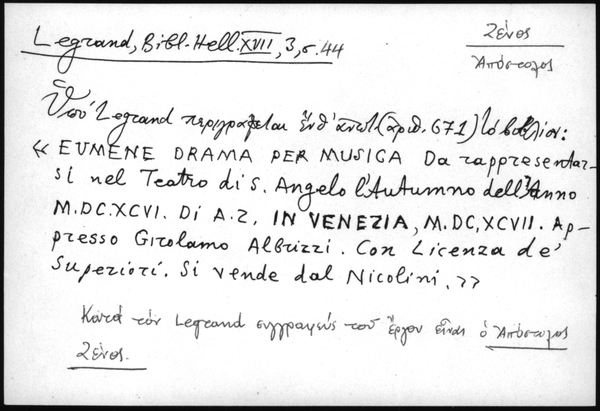 Legrand, Bibl. Hell. XVII, 3, σ. 44
Ζένος
Ἀπόστολος
Ὑπό Legrand περιγράφεται ἔνθ' ἀνωτ. (ἀριθ. 671) τό βιβλίον:
« EUMENE DRAMA PER MUSICA Da rappresentar-
si nel Teatro di S. Angelo l'Autumno dell'Anno
M.DC.XCVI. Di A.Z. IN VENEZIA, M.DC,XCVII. Ap-
presso Girolamo Albrizzi. Con Licenza de'
Superiori. Si vende dal Nicolini. »
Κατά τόν Legrand συγγραφεύς τοῦ ἔργου εἶναι ὁ Ἀπόστολος
Ζένος.